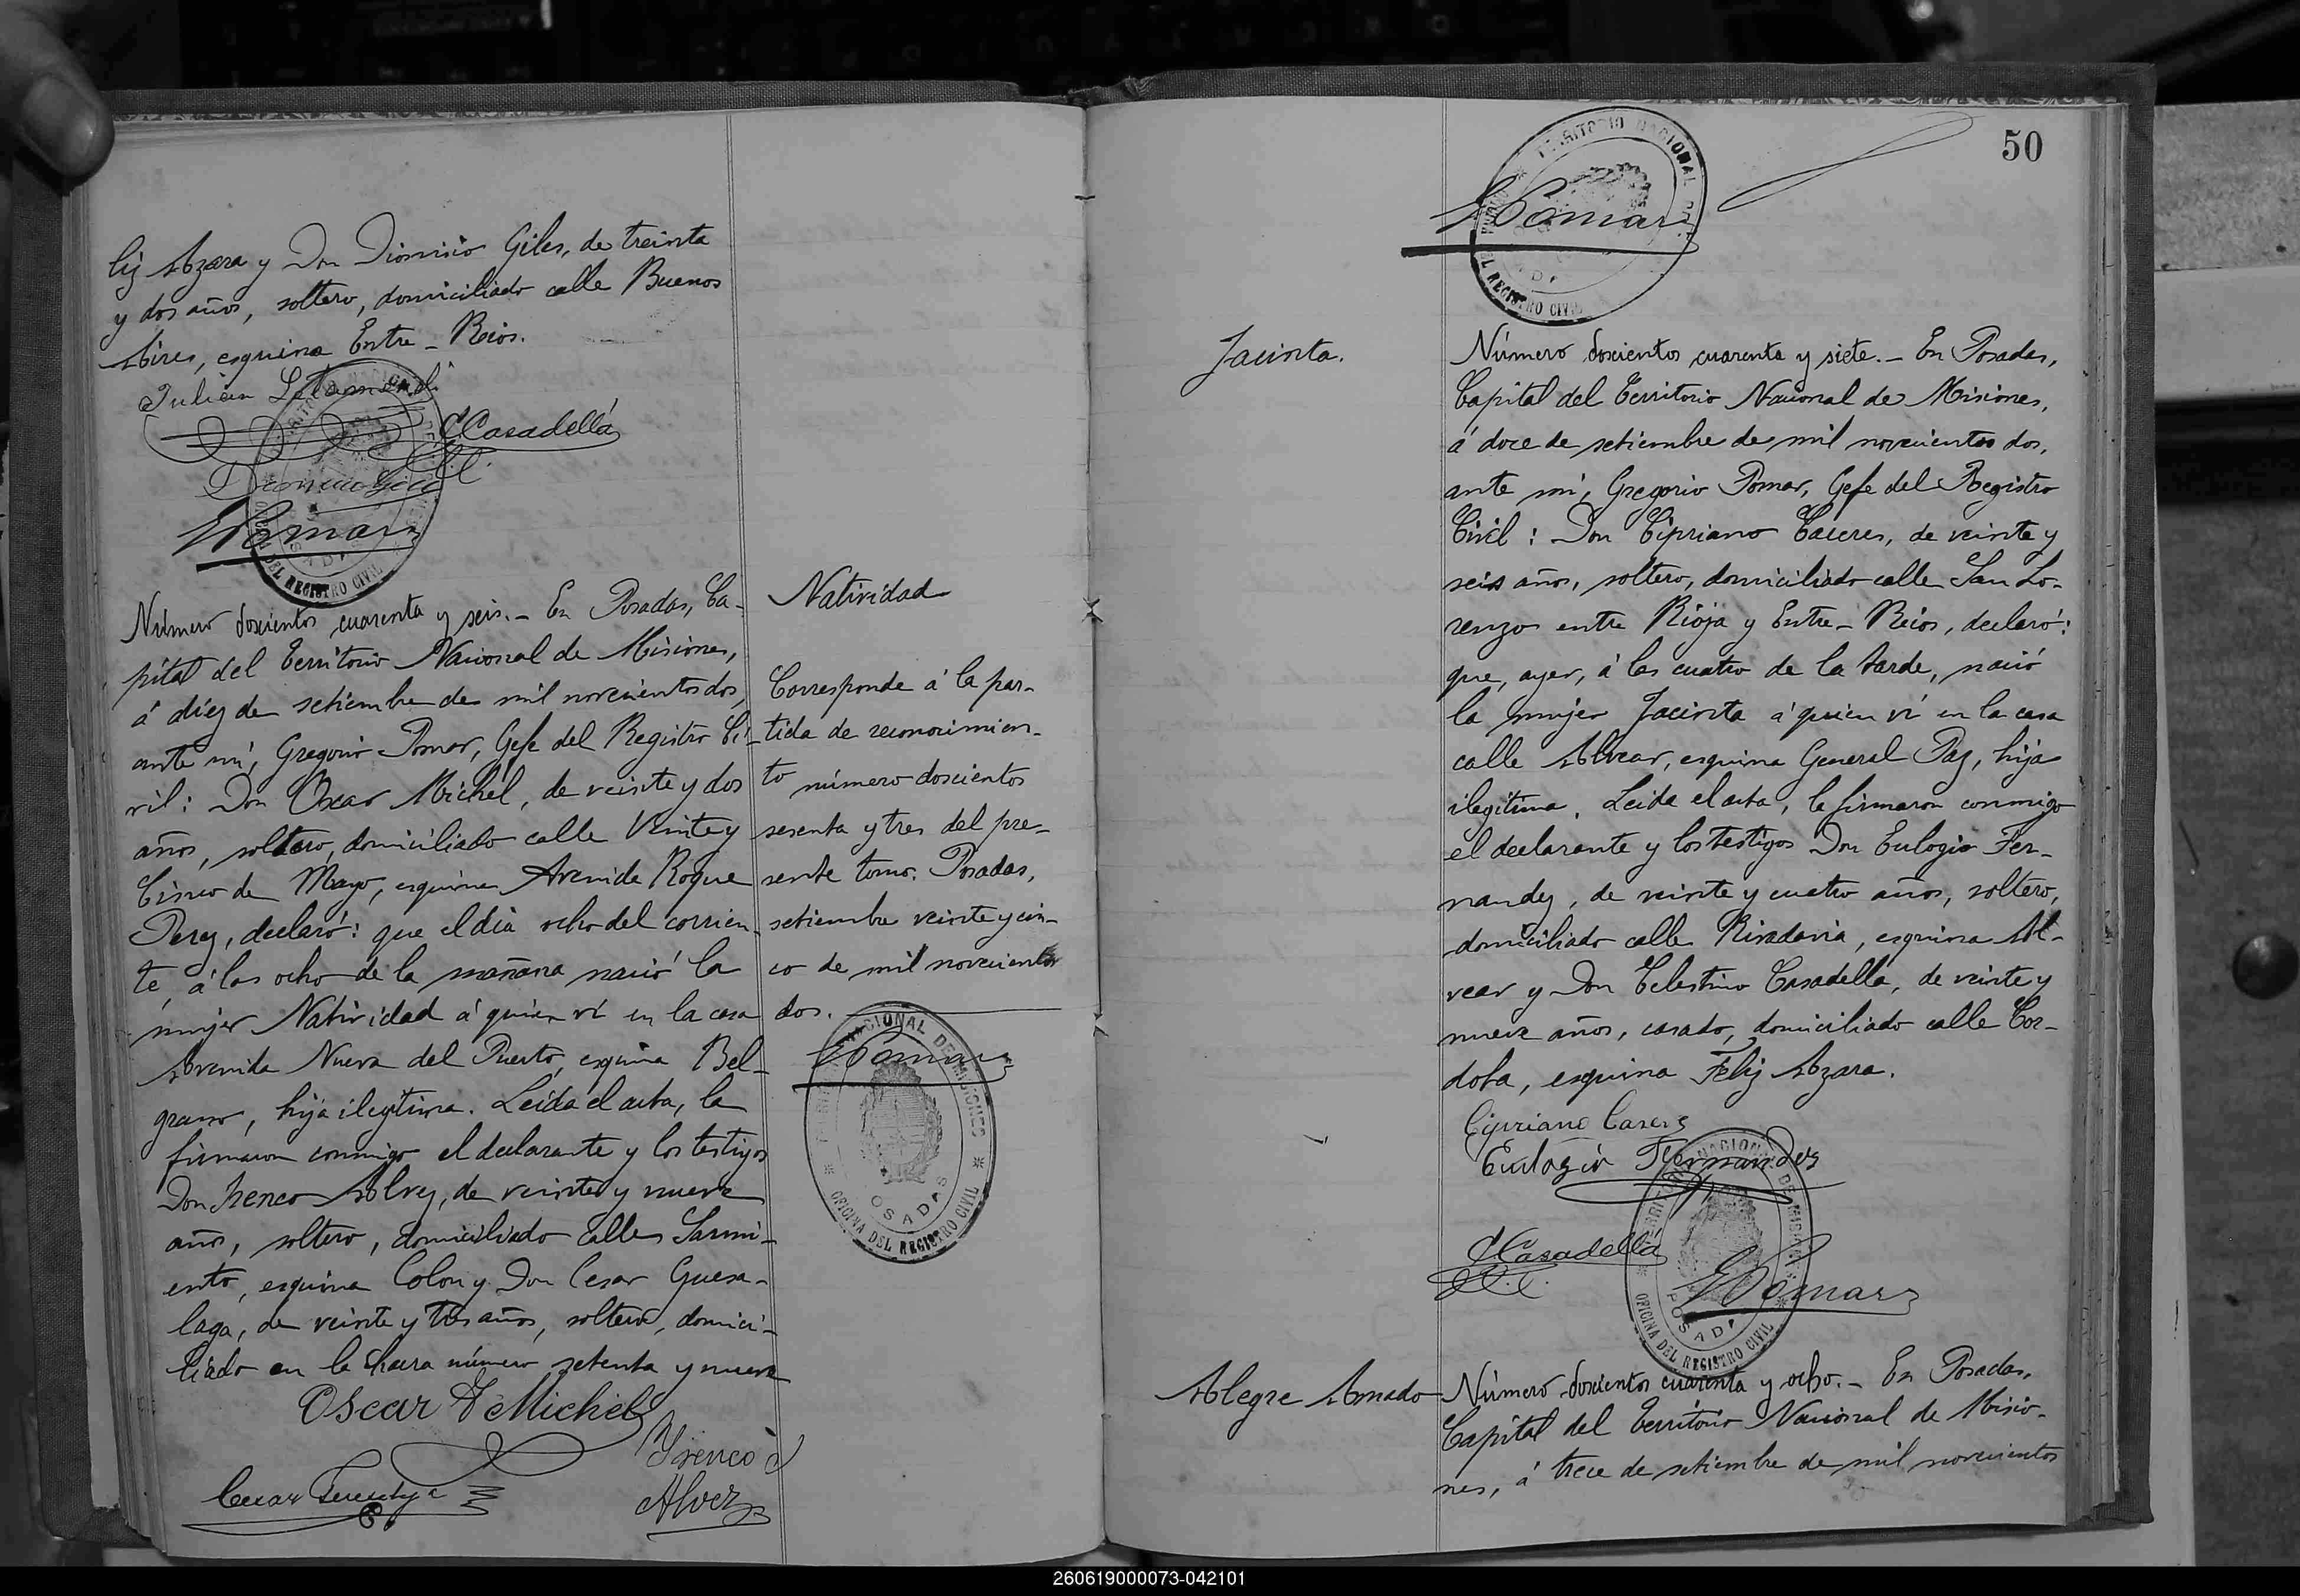 liz Azara y Don Dionisio Giles, de treinta
y dos años, soltero, domiciliado calle Buenos
Aires, esquina Entre - Rios.
Julian Letamendi
CCasadellá
Dionicio Giles
GPomar
Número doscientos cuarenta y seis. - En Posadas, Ca-
pital del Territorio Nacional de Misiones,
á diez de setiembre de mil novecientos dos,
ante mí, Gregorio Pomar, Gefe del Registro Ci-
vil: Don Oscar Michel, de veinte y dos
años, soltero, domiciliado calle Veinte y
Cinco de Mayo, esquina Avenida Roque
Perez, declaró: que el dia ocho del corrien-
te, á las ocho de la mañana nació la
mujer Natividad á quien ví en la casa
Avenida Nueva del Puerto, esquina Bel-
grano, hija ilegitima. Leida el acta, la
firmaron conmigo el declarante y los testigos
Don Ireneo Alvez, de veinte y nueve
años, soltero, domiciliado calle Sarmi-
ento, esquina Colon y Don Cesar Guesa-
laga, de veinte y tres años, soltero, domici-
liado en la chacra número setenta y nueve
Oscar F Michel
Yreneo
Alvez
Cesar
Natividad
Corresponde á la par-
tida de reconocimien-
to número doscientos
sesenta y tres del pre-
sente tomo. Posadas,
setiembre veinte y cin-
co de mil novecientos
dos.
GPomar
TERRITORIO NACIONAL DE MISIONES
POSADAS
OFICINA DEL REGISTRO CIVIL
50
TERRITORIO NACIONAL DE
GPomar
DEL REGISTRO CIVIL
Jacinta.
Número doscientos cuarenta y siete. - En Posadas,
Capital del Territorio Nacional de Misiones,
á doce de setiembre de mil novecientos dos,
ante mí, Gregorio Pomar, Gefe del Registro
Civil: Don Cipriano Caceres, de veinte y
seis años, soltero, domiciliado calle San Lo-
renzo entre Rioja y Entre - Rios, declaró:
que, ayer, á las cuatro de la tarde, nació
la mujer Jacinta á quien ví en la casa
calle Alvear, esquina General Paz, hija
ilegitima. Leida el acta, la firmaron conmigo
el declarante y los testigos Don Eulogio Fer-
nandez, de veinte y cuatro años, soltero,
domiciliado calle Rivadavia, esquina Al-
vear y Don Celestino Casadellá, de veinte y
nueve años, casado, domiciliado calle Cor-
doba, esquina Feliz Azara.
Cipriano Caseres
Eulogio Fernandez
CCasadellá
GPomar
TERRITORIO NACIONAL DE MISIONES
POSADAS
OFICINA DEL REGISTRO CIVIL
Alegre Amado
Número doscientos cuarenta y ocho. - En Posadas,
Capital del Territorio Nacional de Misio-
nes, á trece de setiembre de mil novecientos
260619000073-042101